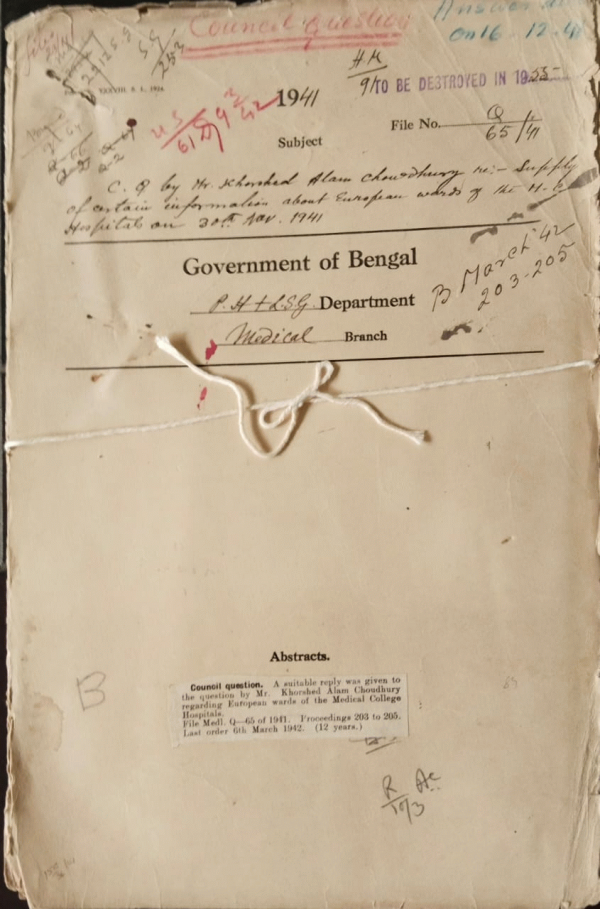 Council question
Answer
on 16.12.41
H.M
TO BE DESTROYED IN 1955
1941
File No. Q
65/41
Subject
C. Q by Mr. Khorshed Alam Chowdhury re:- Supply
of certain information about European wards of the M. C
Hospitals on 30th Nov. 1941
Government of Bengal
P.H & L.S.G. Department
B March '42
203-205
Medical Branch
Abstracts.
B
Council question. A suitable reply was given to
the question by Mr. Khorshed Alam Choudhury
regarding European wards of the Medical College
Hospitals.
File Medl. Q—65 of 1941. Proceedings 203 to 205.
Last order 6th March 1942. (12 years.)
R
10/3